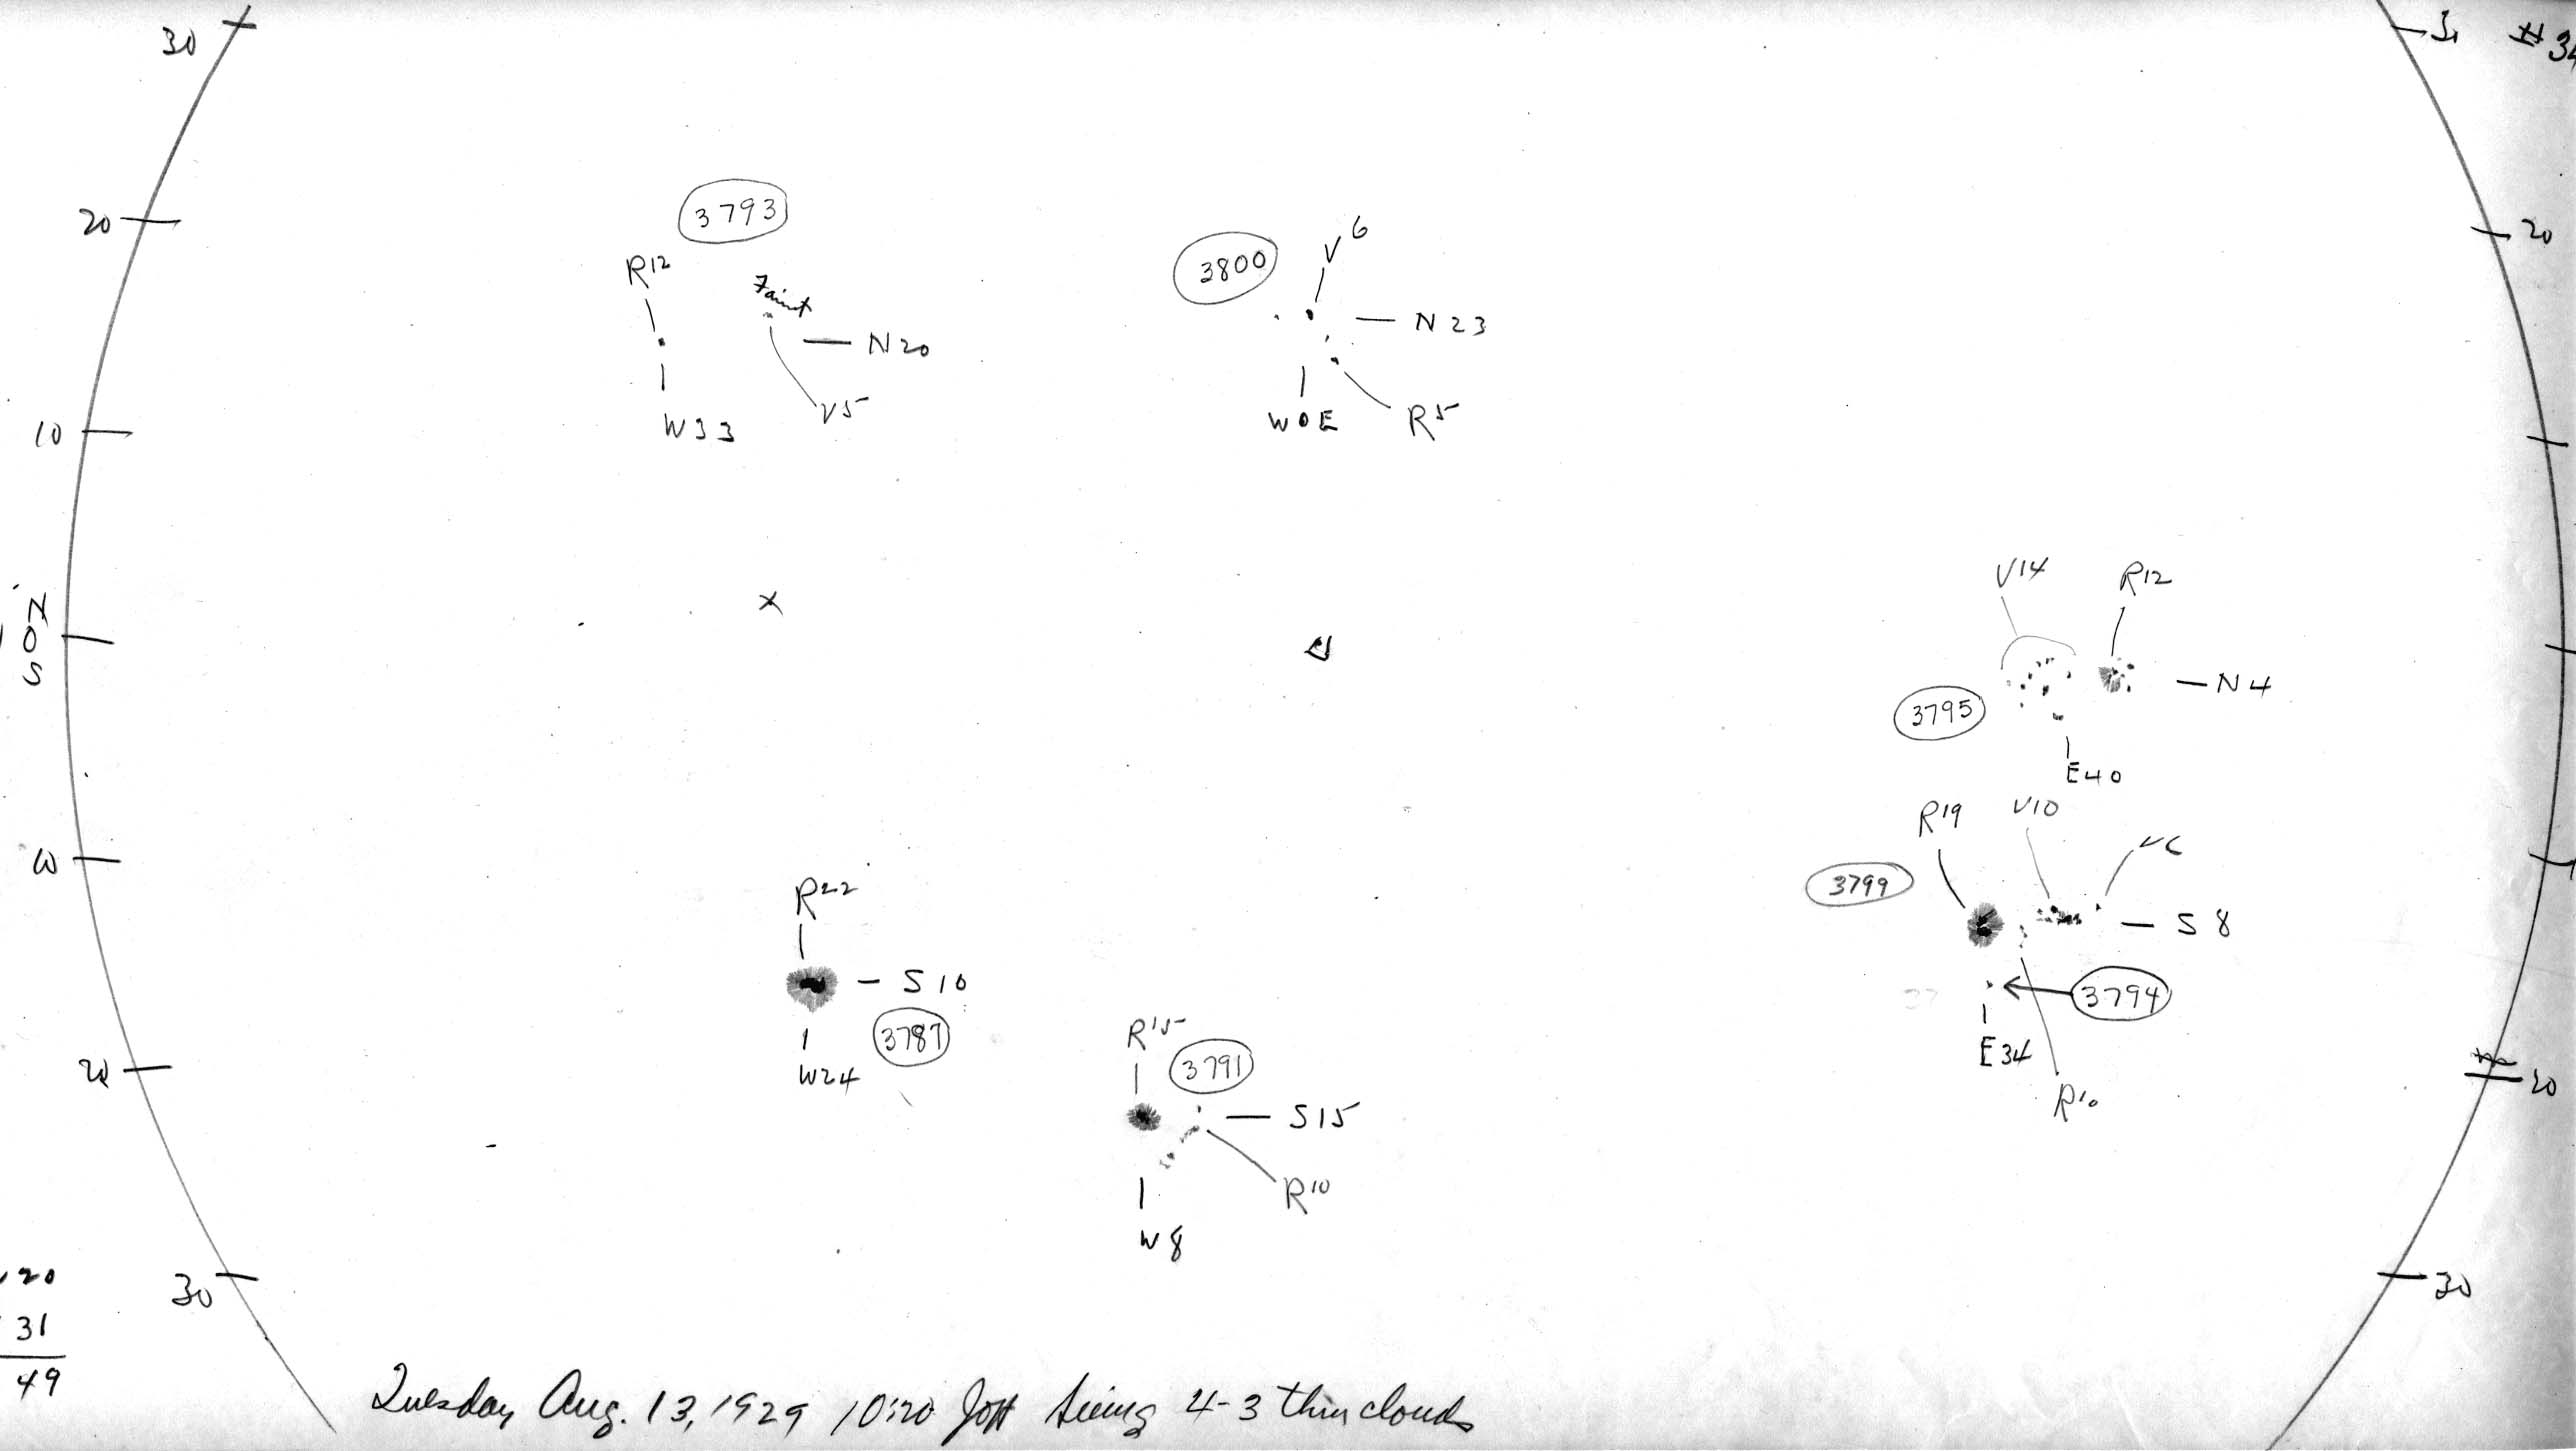 30
31
#34
3793
20
20
R12
Faint
3800
V6
N20
N23
V5
W33
W0E
R5
10
V14
R12
N
0
S
N4
3795
E40
R19
V10
V6
3799
10
R22
S8
S10
3794
3787
W24
R15
3791
E34
20
20
R10
S15
R10
W8
20
31
49
30
30
Tuesday Aug. 13, 1929 10:20 Seeing 4-3 thin clouds